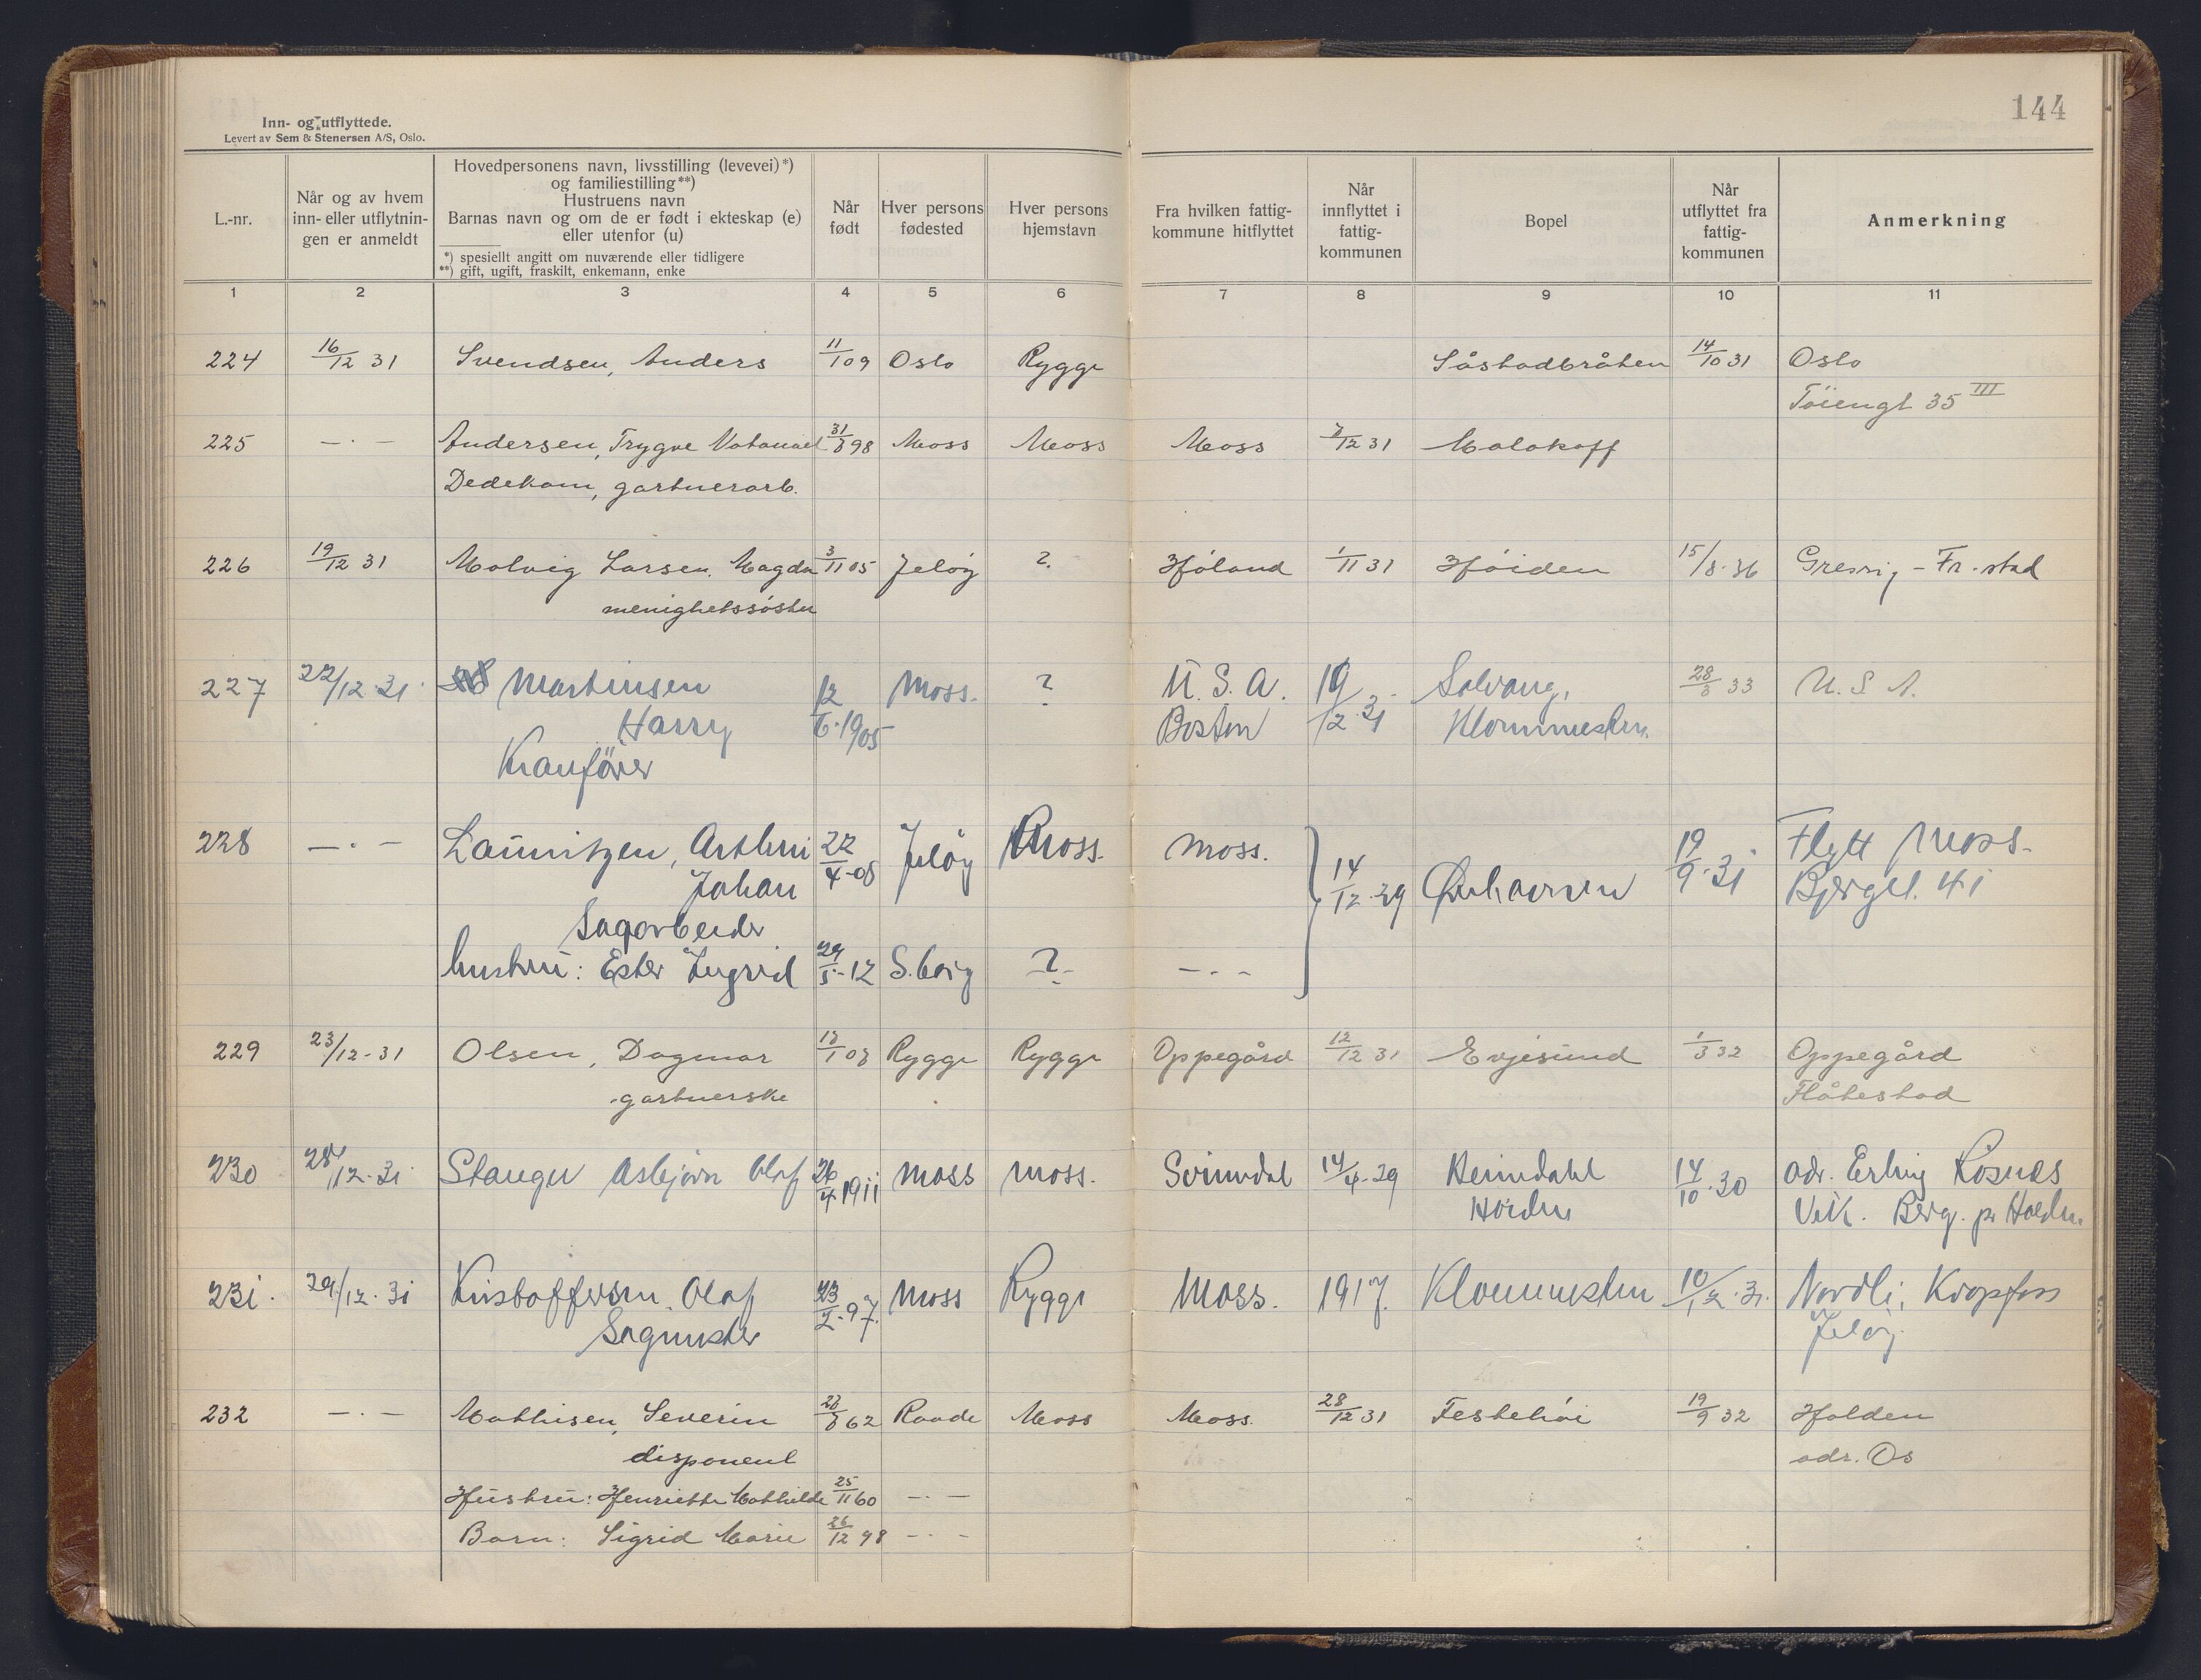 144
Inn- og utflyttede.
Levert av Sem & Stenersen A/S, Oslo.
L.-nr.
Når og av hvem
inn- eller utflytnin-
gen er anmeldt
Hovedpersonens navn, livsstilling (levevei)*)
og familiestilling**)
Hustruens navn
Barnas navn og om de er født i ekteskap (e)
eller utenfor (u)
*) spesiellt angitt om nuværende eller tidligere
**) gift, ugift, fraskilt, enkemann, enke
Når
født
Hver persons
fødested
Hver persons
hjemstavn
Fra hvilken fattig-
kommune hitflyttet
Når
innflyttet i
fattig-
kommunen
Bopel
Når
utflyttet fra
fattig-
kommunen
Anmerkning
1 2 3 4 5 6 7 8 9 10 11
224 16/12 31 Svendsen, Anders 11/1 09 Oslo Rygge Såstadbråten 14/10 31 Oslo
Töiengt 35 III
225 — · — Andersen, Trygve Natanael 31/8 98 Moss Moss Moss 7/12 31 Malakoff
Dedekam, gartnerarb.
226 19/12 31 Molvig Larsen, Magda 3/11 05 Jelöy ? Höland 1/11 31 Höiden 15/8-36 Gresvig - Fr.stad
menighetssöster
227 22/12 31 Martinsen 12/6 1905 Moss. ? U.S.A. 19/12 31 Solvang, 28/3 33 U.S.A.
Harry Boston Klommesten
Kranförer
228 — · — Lauritzen, Arthur 22/4-08 Jelöy Moss. Moss. 14/12-29 19/9-31 Flytt Moss.
Johan Bjergt. 41
Sagarbeider
hustru: Ester Ingrid 29/5-12 S.borg ? — · —
229 23/12-31 Olsen, Dagmar 18/1 08 Rygge Rygge Oppegård 12/12 31 Evjesund 1/3 32 Oppegård
gartnerske Flåtestad
230 28/12-31 Stanger Asbjörn Olaf 26/4 1911 Moss Moss. Svinndal 14/4-29 14/10-30 adr. Erling Rosnes
Höiden Vik. Berg. pr Halden
231. 29/12-31 Kristoffersen, Olaf 23/2-97. Moss Rygge Moss. 1917. Klommesten 10/12-31. Nordli, Kropfoss
Sagmester Jelöy.
232 — · — Mathisen, Severin 28/8 62 Raade Moss Moss. 28/12 31 Festehöi 19/9 32 Halden
disponent adr. Os
Hustru: Henriette Mathilde 25/11 60 — · —
Barn: Sigrid Marie 26/12 98 — · —